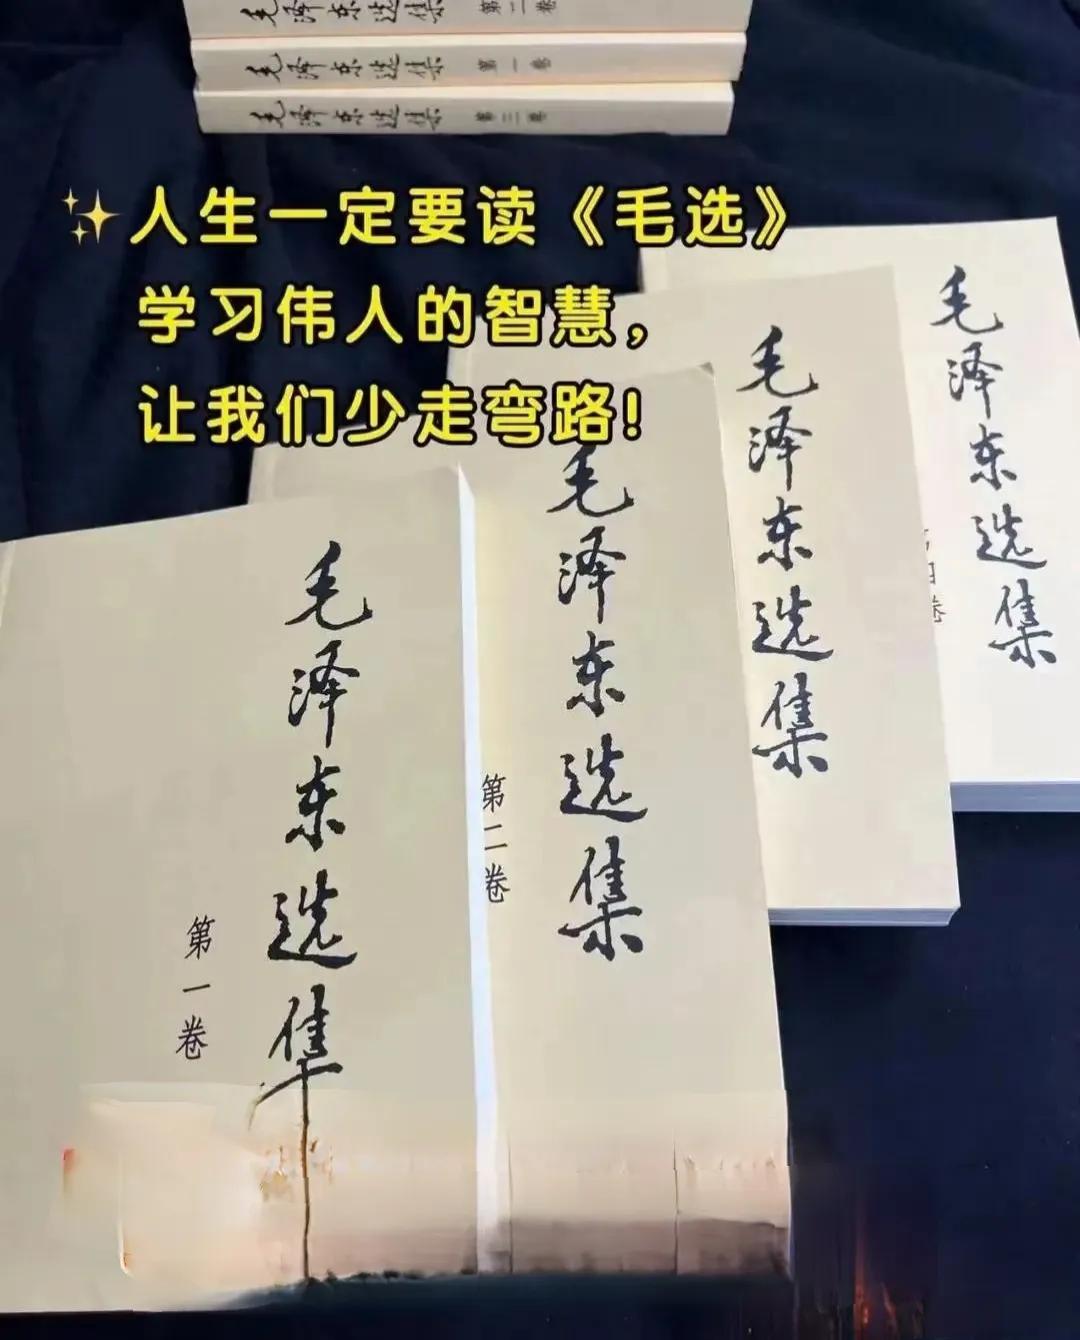 毛泽东选集 第二卷
毛泽东选集 第一卷
毛泽东选集 第三卷
人生一定要读《毛选》
学习伟人的智慧，
让我们少走弯路！
毛泽东选集
第一卷
毛泽东选集
第二卷
毛泽东选集
毛泽东选集
四卷